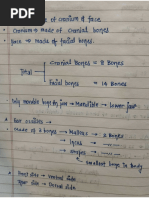 of cranium & face
Cranium → Made of cranial bones
Face → Made of facial bones.
Cranial Bones = 8 Bones
Total
Facial bones = 14 Bones
Only movable bones is jaw → Mandible → Lower jaw
Ear ossicles →
Made of 3 bones → Malleus → 2 Bones
→ Incus → 2 bones
→ stapes → 2 bones
smallest bone in body
Front side → Ventral side
Upper side → Dorsal side